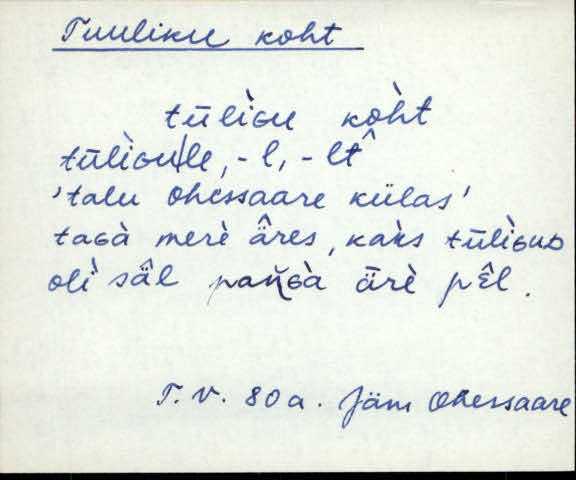 Tuuliku koht
tūlìɢu kò̭ht
tūlìɢu|le, -l, -lt
'talu Ohessaare külas'
taɢà merè ä̂res, kaks tūlìɢuᴅ
olì sä̂l paŋ̆ɢà ǟrè pɛ̂l.
T. V. 80 a. Jäm Ohessaare